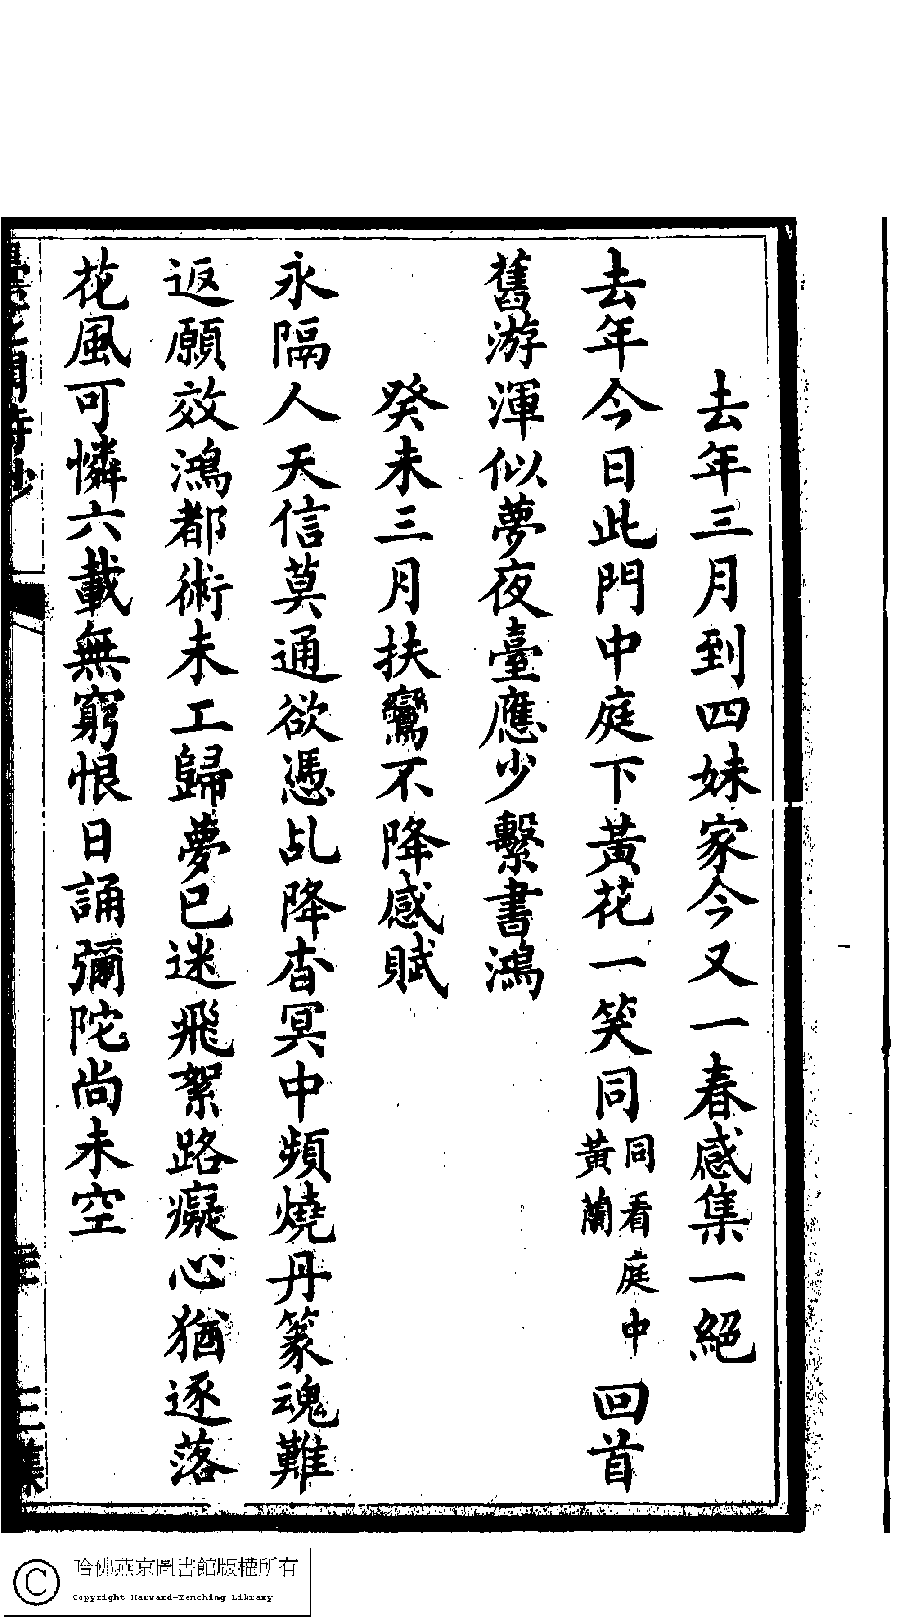 去年三月到四妹家今又一春感集一絕
去年今日此門中庭下黃花一笑同同看庭中黃蘭回首
舊游渾似夢夜臺應少繫書鴻
癸未三月扶鸞不降感賦
永隔人天信莫通欲憑乩降杳冥中頻燒丹篆魂難
返願效鴻都術未工歸夢已迷飛絮路癡心猶逐落
花風可憐六載無窮恨日誦彌陀尚未空
三集
哈佛燕京圖書館版權所有
Copyright Harvard-Yenching Library